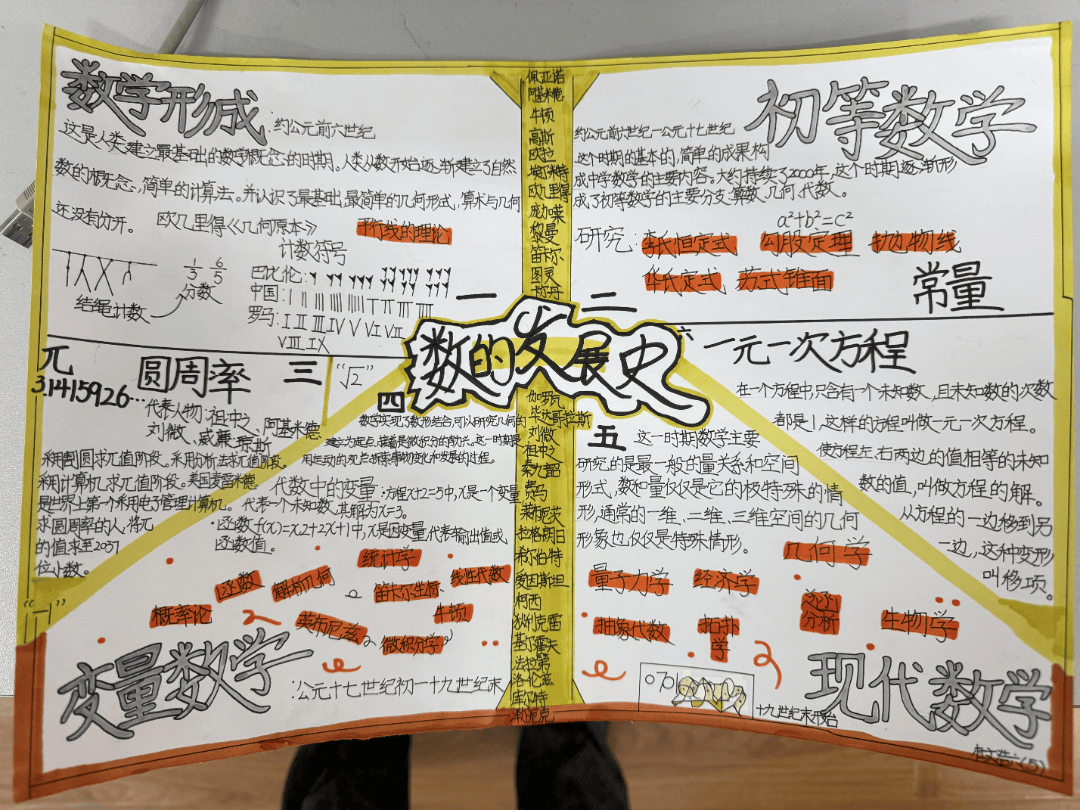 数学形成
约公元前六世纪
这是人类建立最基础的数学概念的时期。人类从数开始逐渐建立了自然
数的概念、简单的计算法。并认识了最基础,最简单的几何形式,算术与几何
还没有分开。 欧几里得《几何原本》 平行线的理论
计数符号
1/3 6/5
分数
结绳计数
巴比伦:
中国:
罗马: I II III IV V VI VII
VIII IX
初等数学
约公元前六世纪—公元十七世纪
这个时期的基本的,简单的成果构
成中学数学的主要内容。大约持续了2000年。这个时期逐渐形
成了初等数学的主要分支:算数、几何、代数。
a²+b²=c²
研究: 勾股定理 抛物线
常量
佩亚诺
阿基米德
牛顿
高斯
欧拉
埃尔米特
欧几里得
庞加莱
黎曼
笛卡尔
图灵
一 二
数的发展史
伽罗瓦
毕达哥拉斯
刘徽
祖中之
秦九韶
费马
莱布尼茨
拉格朗日
希尔伯特
爱因斯坦
柯西
狄利克雷
基尔霍夫
法拉第
洛伦兹
库尔特
π 圆周率 三
3.1415926…
代表人物:祖中之、阿基米德
刘徽、威廉·琼斯
采用割圆求π值阶段。采用分析法求π值阶段。
采用计算机求π值阶段。美国麦雷米德
是世界上第一个采用电子管理计算机。
求圆周率的人,将π
的值求至2037
位小数。
"√2"
四
数学实现了数形结合,可以用研究几何的
用运动的观点探索事物变化和发展的过程。
代数中的变量:方程x+2=5中,x是一个变量
代表一个未知数,其解为x=3。
函数f(x)=x2+2x+1中,x是因变量代表输出值或
函数值。
统计学
函数 解析几何 笛卡尔坐标 线性代数
概率论 莱布尼兹 微积分学 牛顿
变量数学
公元十七世纪初—十九世纪末
五
这一时期数学主要
研究的是最一般的量关系和空间
形式,数和量仅仅是它的极特殊的情
形,通常的一维、二维、三维空间的几何
形象也仅仅是特殊情形。
几何学
量子力学 经济学 泛函分析 生物学
抽象代数 拓扑学
现代数学
十九世纪末
六
一元一次方程
在一个方程中,只含有一个未知数,且未知数的次数
都是1,这样的方程叫做一元一次方程。
使方程左、右两边的值相等的未知
数的值,叫做方程的解。
从方程的一边移到另
一边,这种变形
叫移项。